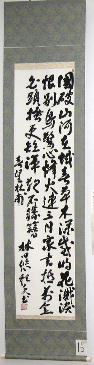 國破山河在城春草木深感時花濺淚
恨別鳥驚心烽火連三月家書抵萬金
白頭搔更短渾欲不勝簪
春望杜甫
林
15